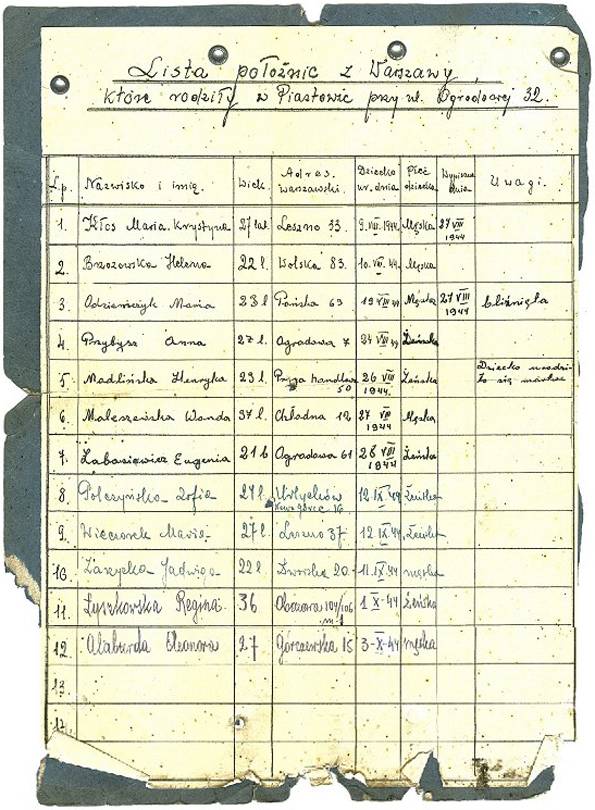 Lista położnic z Warszawy,
które rodziły w Piastowie przy ul. Ogrodowej 32.
L.p. Nazwisko i imię. Wiek. Adres. warszawski. Dziecko ur. dnia Płeć dziecka Wypisana dnia Uwagi.
1. Kłos Maria Krystyna 27 lat. Leszno 33. 9.VIII.1944. Męska 27 VIII 1944
2. Brzozowska Helena 22 l. Wolska 83. 10.VIII.44. Męska
3. Odzieńczyk Maria 23 l Pańska 69 19 VIII 44 Męska 27 VIII 1944 bliźnięta
4. Przybysz Anna 27 l. Ogrodowa 7 24 VIII 44 Żeńska
5. Madlińska Henryka 23 l. Prosja Handlowa 50 26 VIII 1944. Żeńska Dziecko urodziło się martwe
6. Maleszewska Wanda 37 l. Chłodna 12 27 VIII 1944 Męska
7. Łabasiewicz Eugenia 21 l. Ogrodowa 61 28 VIII 1944 Żeńska
8. Polczyńska Zofia 27 l. 16 12 IX 44 Żeńska
9. Wieczorek Maria 27 l. Leszno 37 12.IX.44. Żeńska
10. Jadwiga 22 l Dworska 20. 11.IX.44 męska
11. Łyszkowska Regina. 36 Obozowa 104/106 m.1 1 X-44 Żeńska
12. Alaburda Eleonora 27 Górczewska 15 3-X-44 męska
13.